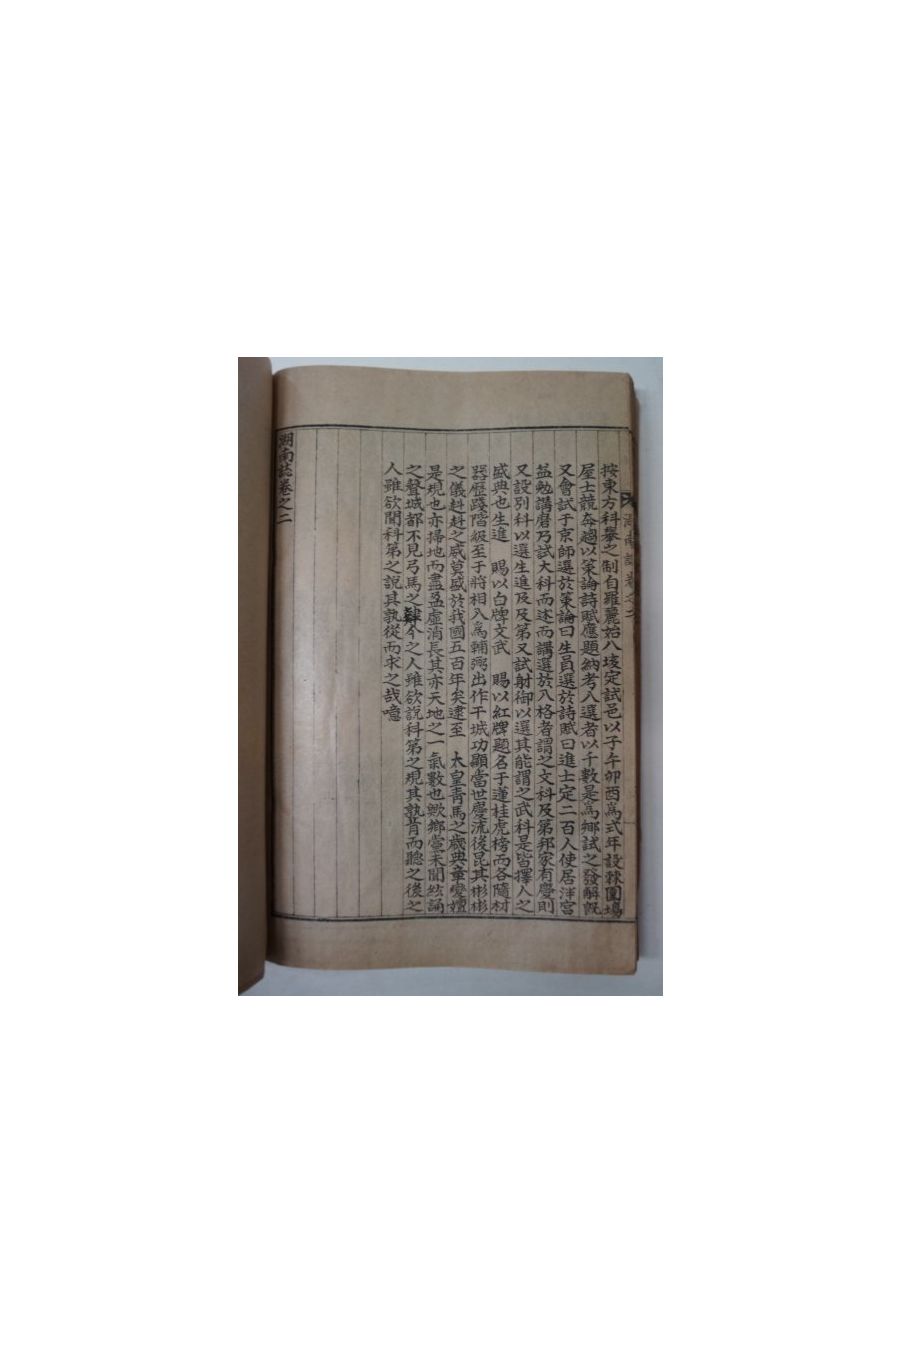 按東方科擧之制自羅麗始八垓定試邑以子午卯酉爲式年設棘圍場
屋士競奔趨以策論詩賦應題納考入選者以千數是爲鄕試之發解旣
又會試于京師選於策論曰生員選於詩賦曰進士定二百人使居泮宮
益勉講磨乃試大科而述而講選於入格者謂之文科及第邦家有慶則
又設別科以選生進及及第又試射御以選其能謂之武科是皆擇人之
盛典也生進 賜以白牌文武 賜以紅牌題名于蓮桂虎榜而各隨材
器歷踐階級至于將相入爲輔弼出作干城功顯當世慶流後昆其彬彬
之儀赳赳之威莫盛於我國五百年矣逮至 太皇靑馬之歲典章變嬗
是規也亦掃地而盡盈虛消長其亦天地之一氣數也歟鄕黨未聞絃誦
之聲城都不見弓馬之肄今之人雖欲說科第之規其孰肯而聽之後之
人雖欲聞科第之說其孰從而求之哉噫
湖南誌卷之二